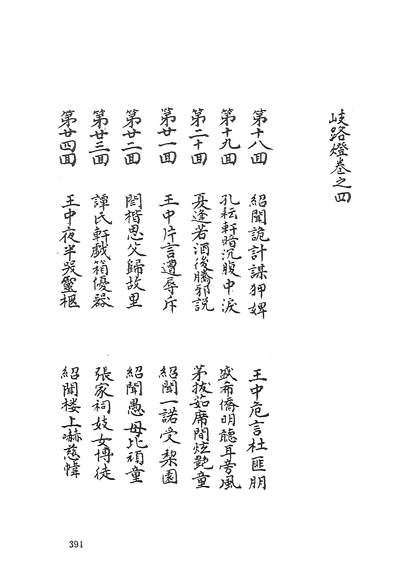 岐路燈卷之四
第十八囬 紹聞詭計謀狎婢 王中危言杜匪朋
第十九囬 孔耘軒暗沉腹中淚 盛希僑明聽耳旁風
第二十囬 夏逢若酒後騰邪説 茅拔茹席間炫艷童
第廿一囬 王中片言遭辱斥 紹聞一諾受梨園
第廿二囬 閻楷思父歸故里 紹聞愚母比頑童
第廿三囬 譚氏軒戲箱優器 張家祠妓女博徒
第廿四囬 王中夜半哭靈柩 紹聞楼上嚇慈幃
391